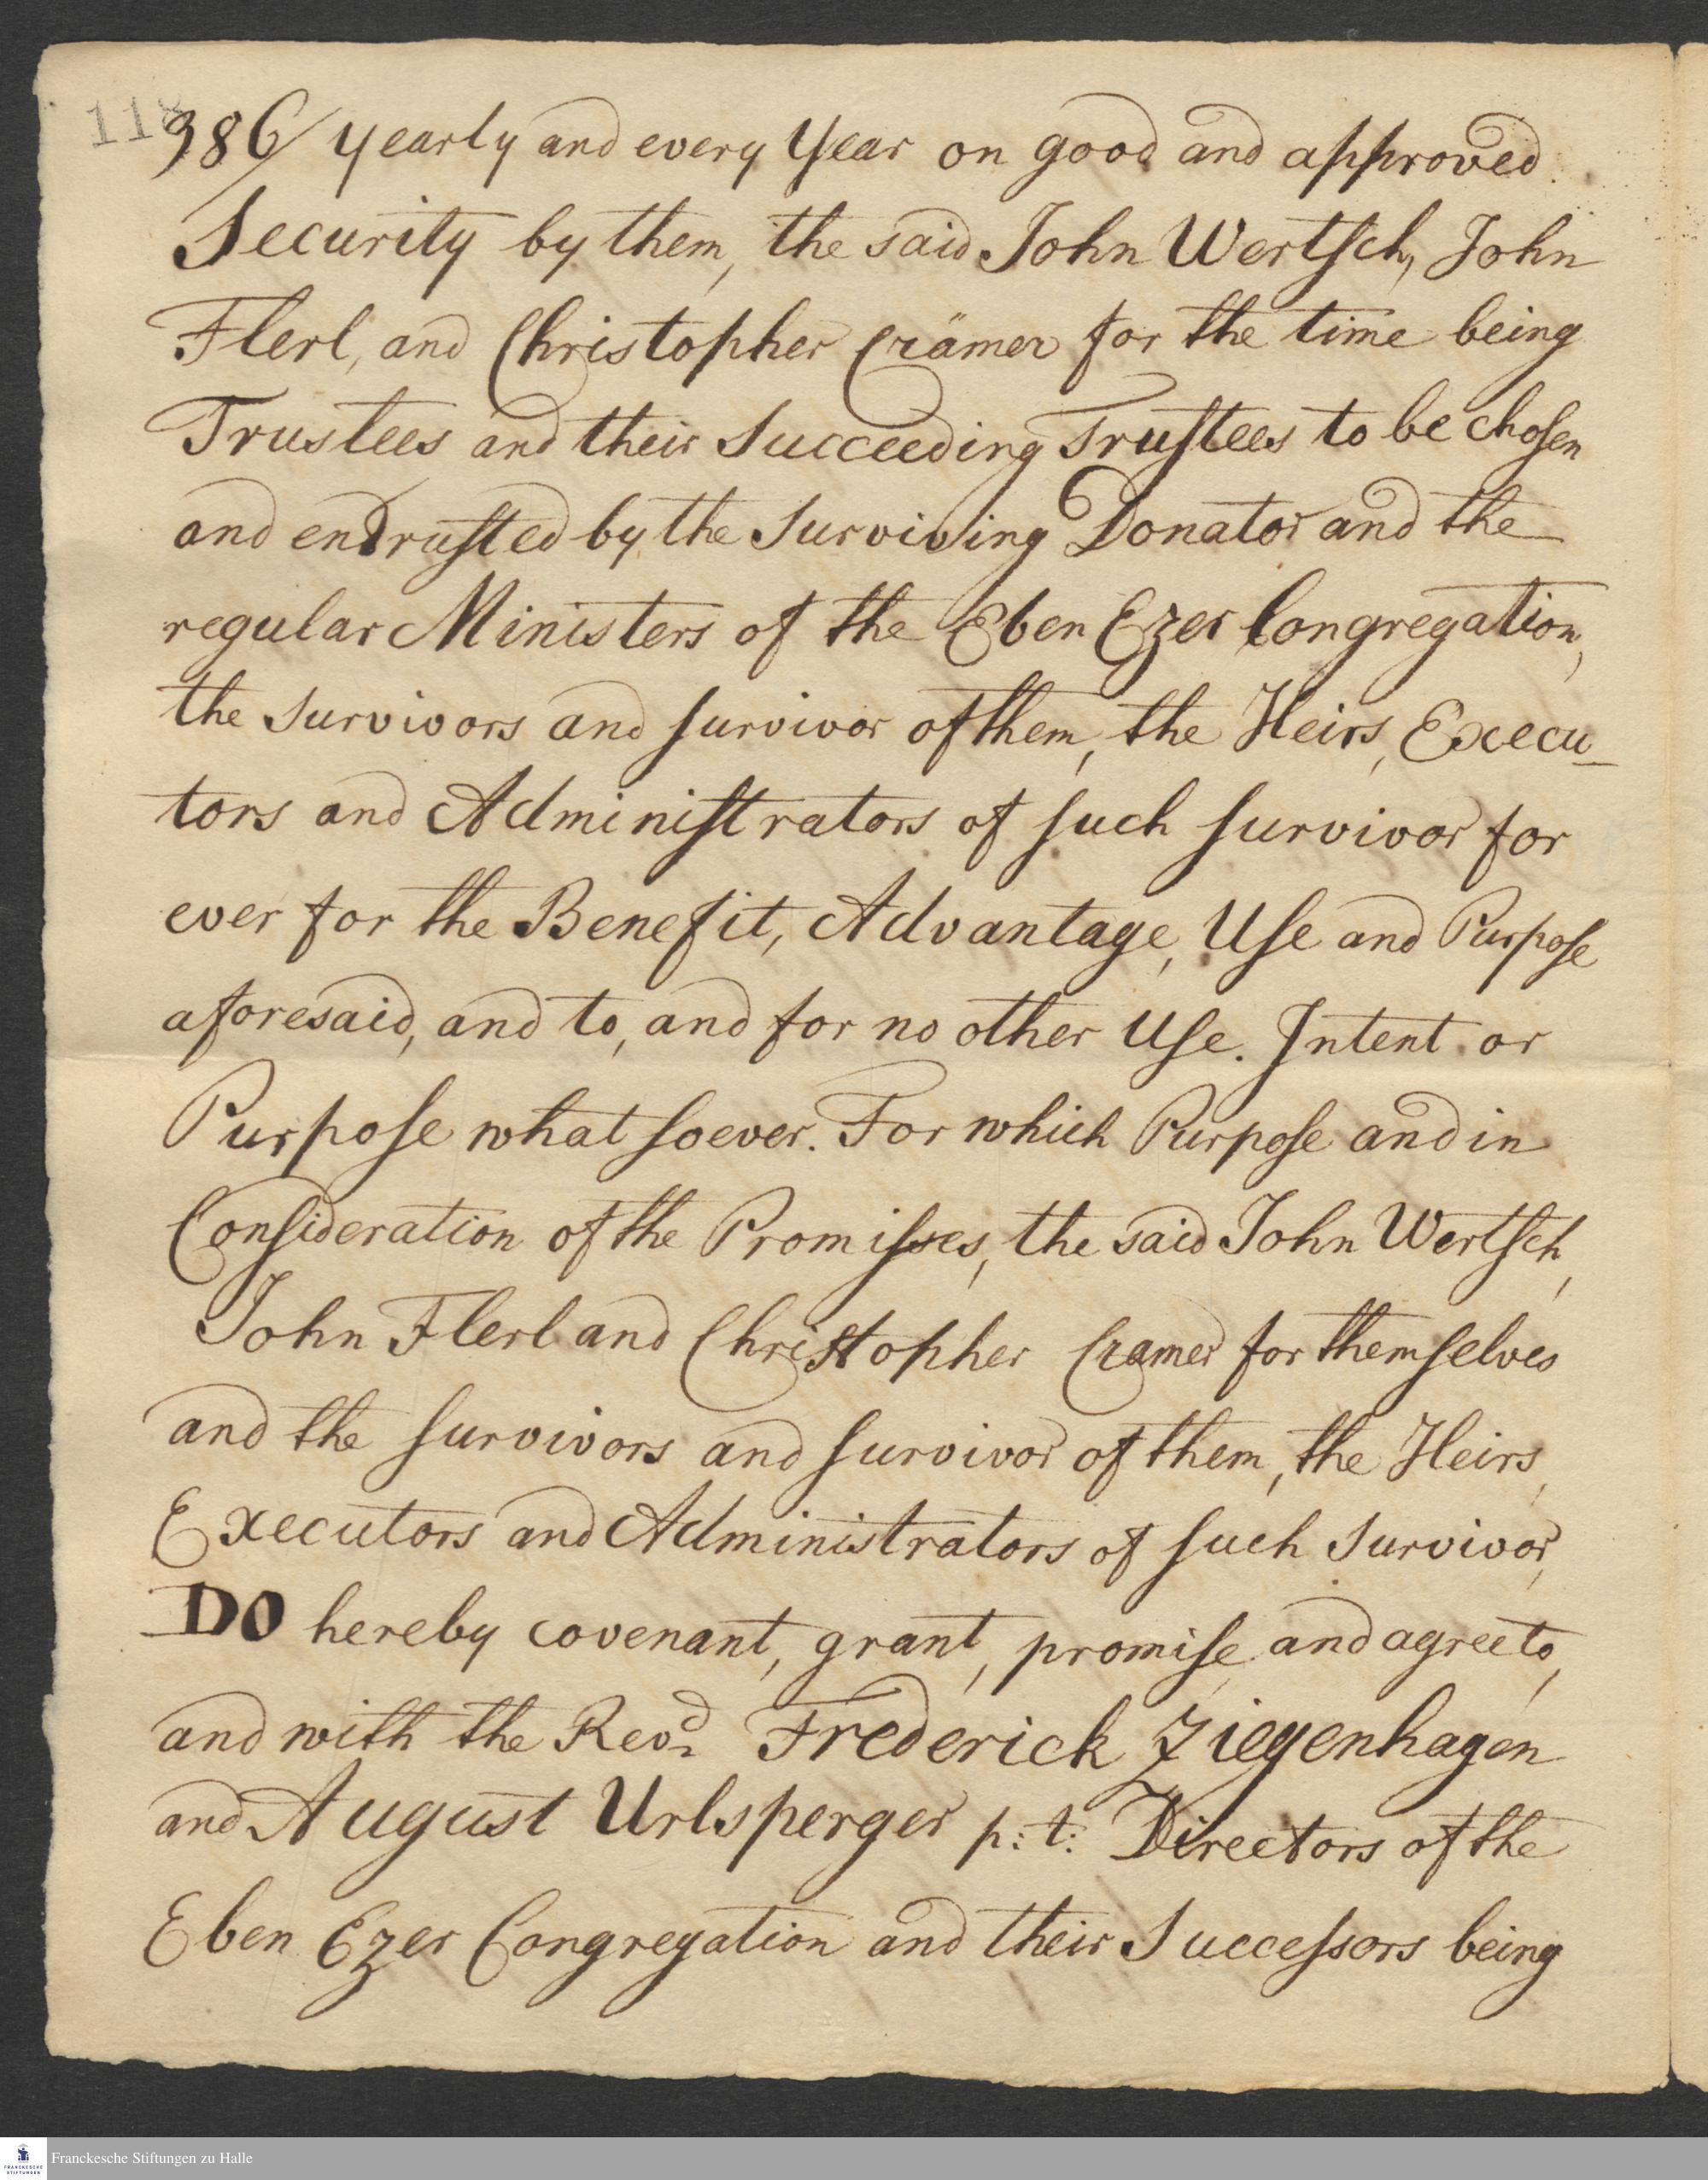 118
386/ yearly and every Year on good and approved
Security by them, the said John Wertsch, John
Flerl, and Christopher Crämer for the time being
Trustees and their Succeeding Trustees to be chosen
and entrusted by the Surviving Donator and the
regular Ministers of the Eben Ezer Congregation,
the Survivors and survivor of them, the Heirs, Execu_
tors and Administrators of such survivor for
ever for the Benefit, Advantage, Use and Purpose
aforesaid, and to, and for no other Use. Intent or
Purpose whatsoever. For which Purpose and in
Consideration of the Promisses, the said John Wertsch,
John Flerl and Christopher Cramer for themselves
and the survivors and survivor of them, the Heirs,
Executors and Administrators of such Survivor,
DO hereby covenant, grant, promise, and agree to,
and with the Revd. Frederick Ziegenhagen
and August Urlsperger p: t: Directors of the
Eben Ezer Congregation and their Successors being
FRANCKESCHE
STIFTUNGEN
Franckesche Stiftungen zu Halle